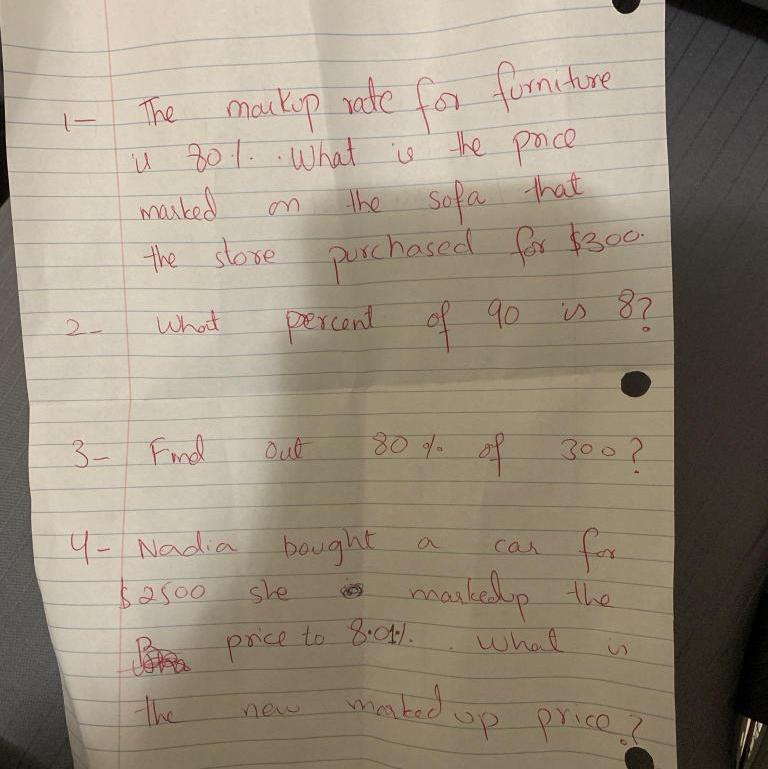 1- The markup rate for furniture
is 80%. What is the price
marked on the sofa that
the store purchased for $300.
2- What percent of 90 is 8?
3- Find out 80% of 300?
4- Nadia bought a car for
$2500 she markedup the
price to 8.01%. What is
the new marked up price?